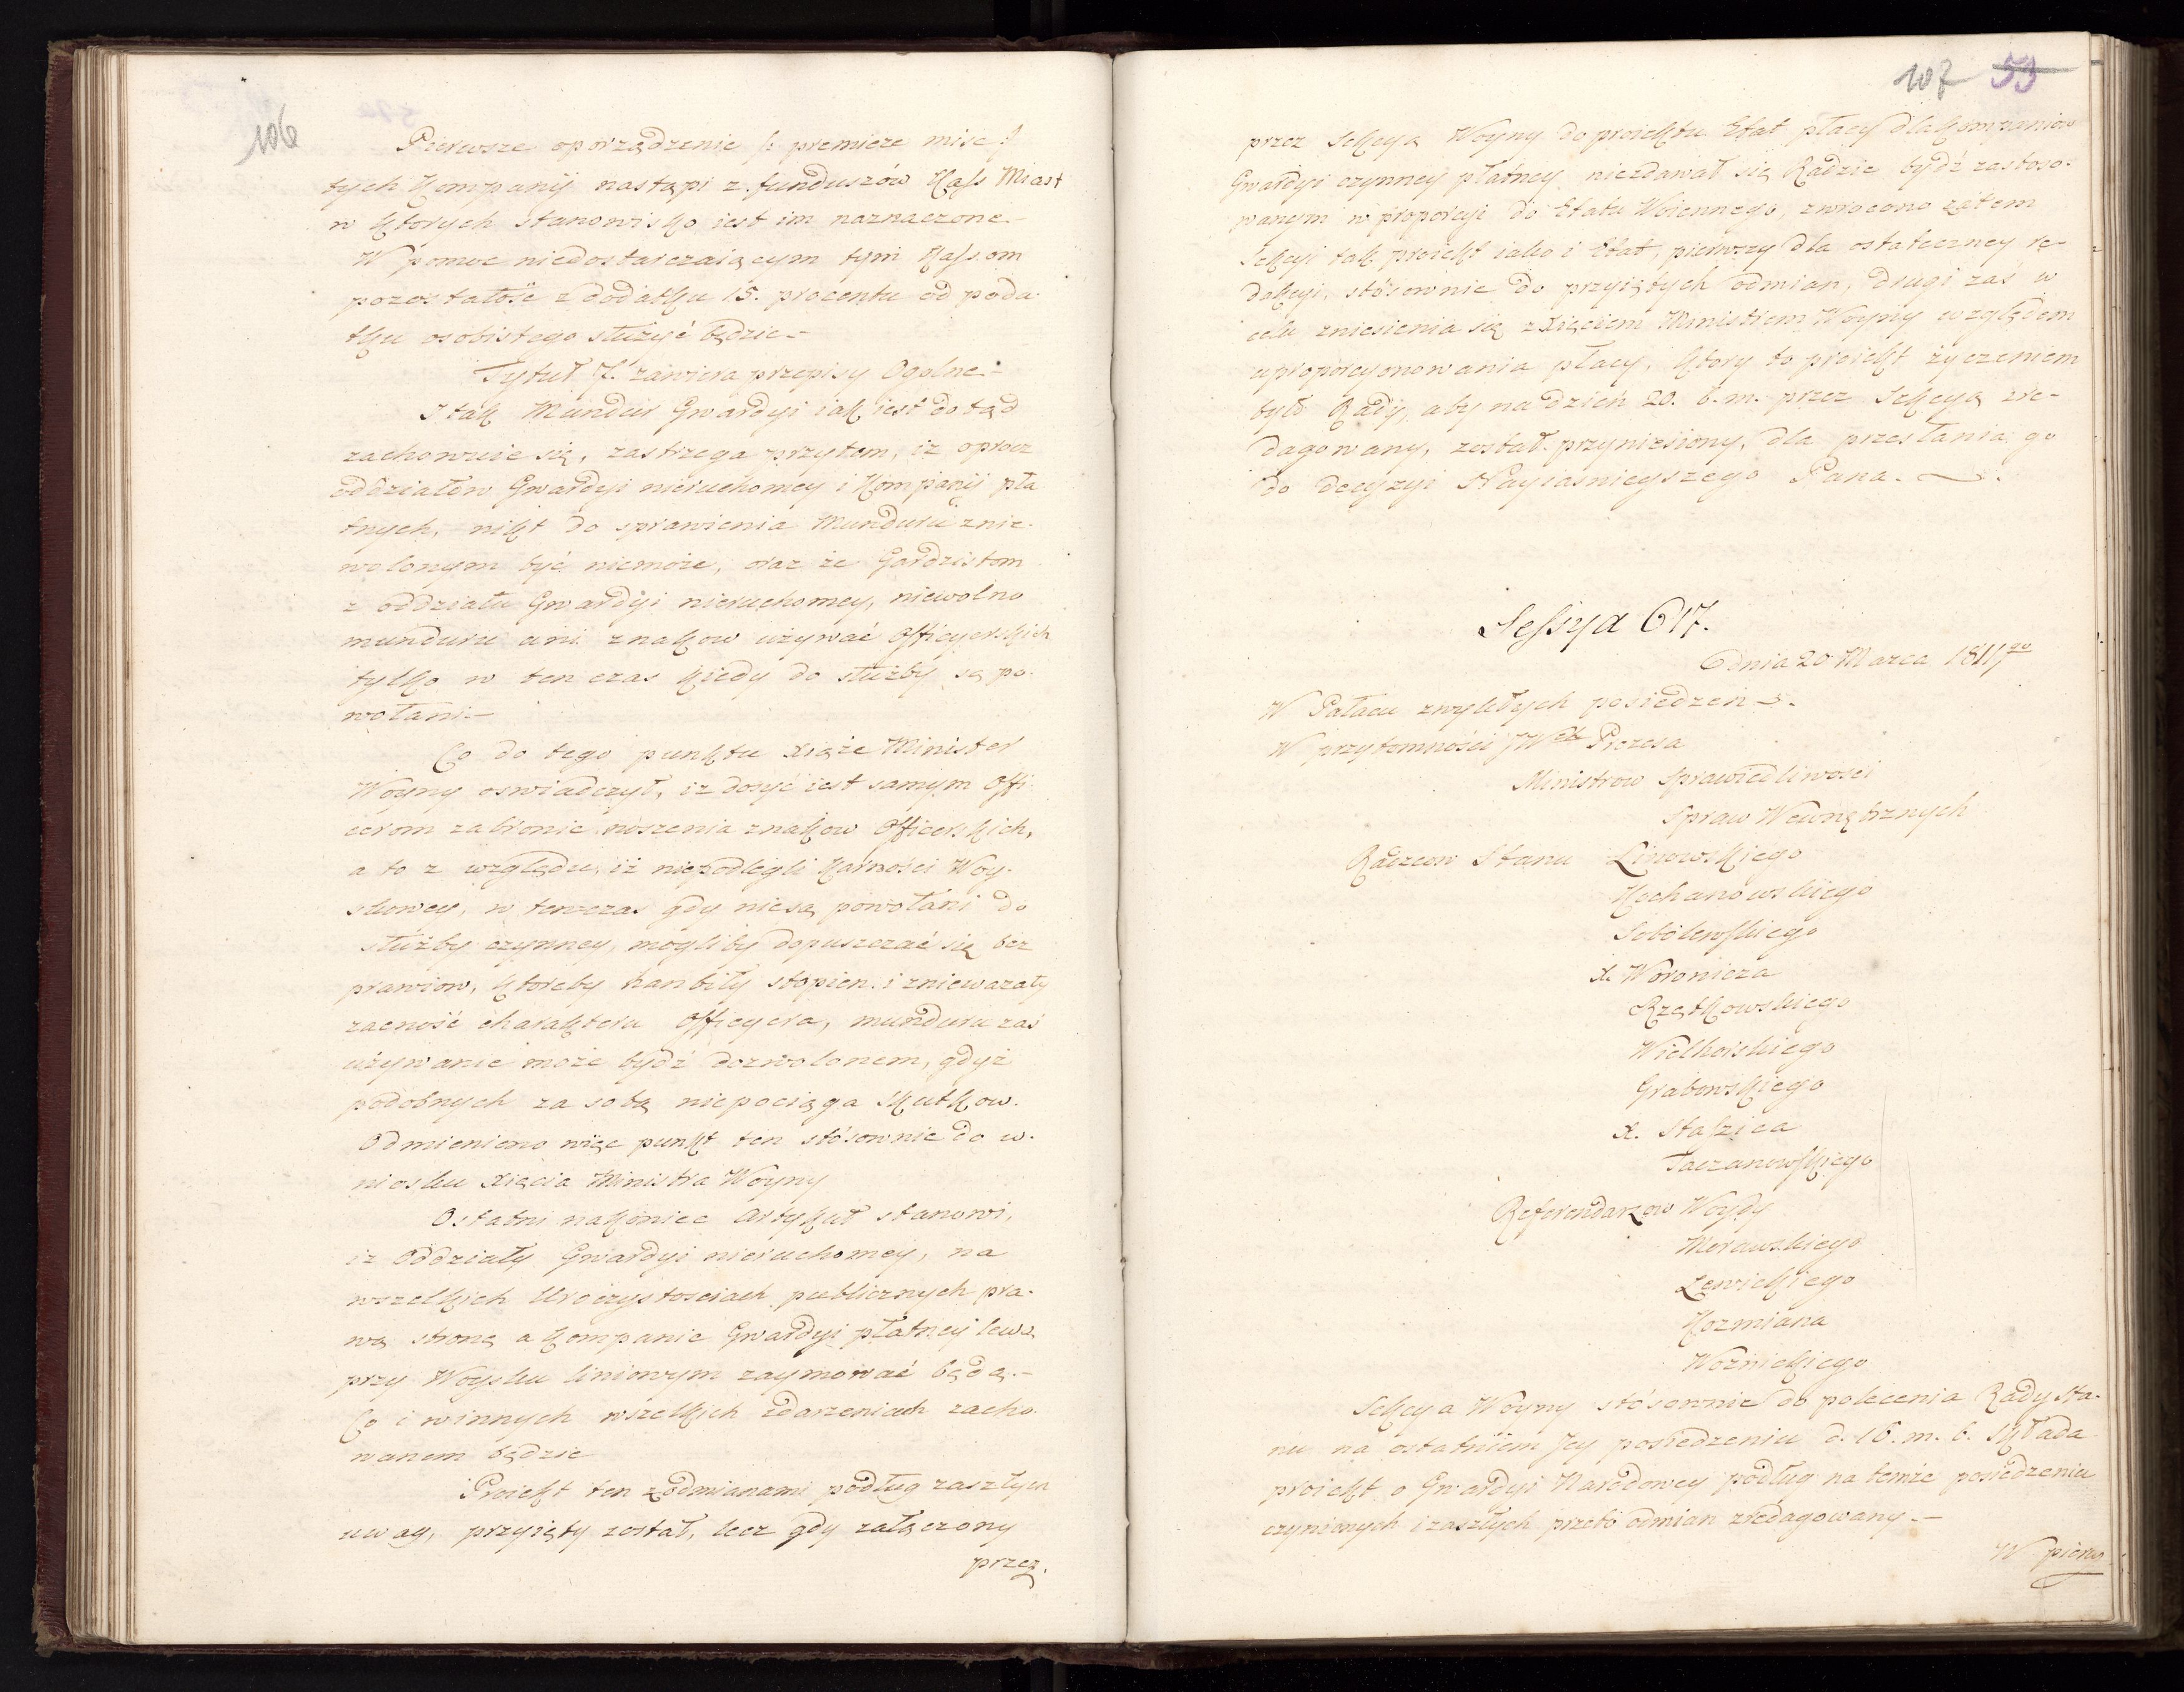 106
Pierwsze oporządzenie /: premiere mise :/
tych Kompanij nastąpi z funduszów Kass Miast
w ktorych stanowisko iest im naznaczone.–
W pomoc niedostarczaiącym tym Kassom
pozostałość z dodatku 15. procentu od poda-
tku osobistego służyć będzie.–
Tytuł 7. zawiera przepisy Ogolne.–
I tak Mundur Gwardyi iak iest dotąd
zachowuie się, zastrzega przytem, iż oprocz
oddziałow Gwardyi nieruchomey i Kompanij pła
tnych, nikt do sprawienia Munduru znie-
wolonym być niemoże, oraz że Gardzistom
z oddziału Gwardyi nieruchomey, niewolno
munduru ani znakow używać Officyerskich
tylko w ten czas kiedy do służby są po-
wołani.–
Co do tego punktu Xiąże Minister
Woyny oswiadczył, iż dosyć iest samym Offi-
cerom zabronić noszenia znakow Officerskich,
a to z względu, iż niepodlegli karności Woy-
skowey, w tenczas gdy niesą powołani do
służby czynney, mogliby dopuszczać się bez
prawiow, ktoreby hanbiły stopien i znieważały
zacność charakteru Officyera, munduru zaś
używanie może bydź dozwolonem, gdyż
podobnych za sobą niepociąga skutkow.
Odmieniono więc punkt ten stósownie do w-
niosku Xięcia Ministra Woyny
Ostatni nakoniec Artykuł stanowi,
iż Oddziały Gwardyi nieruchomey, na
wszelkich Uroczystosciach publicznych pra-
wą stronę a kompanie Gwardyi płatney lewą
przy Woysku liniowym zaymować będą.–
Co i winnych wszelkich zdarzeniach zacho-
wanem będzie
Proiekt ten z odmianami podług zaszłych
uwag, przyięty został, lecz gdy załączony
przez.
107 53
przez Sekcyą Woyny do proiektu Etat płacy dla kompaniow
Gwardyi czynney płatney niezdawał się Radzie bydź zastoso-
wanym w proporcyi do Etatu Woiennego, zwrocono zatem
Sekcyi tak proiekt iako i Etat, pierwszy dla ostateczney re-
dakcyi, stósownie do przyiętych odmian, drugi zaś w
celu zniesienia się z Xięciem Ministrem Woyny względem
uproporcyonowania płacy, ktory to proiekt życzeniem
było Rady, aby na dzień 20. b. m. przez Sekcyą zre-
dagowany, został przyniesiony, dla przesłania go
do decyzyi Nayiasnieyszego Pana.
Sessya 617.
Dnia 20 Marca 1811go
W Pałacu zwykłych posiedzeń.
W przytomności JWgo Prezesa
Ministrow Sprawiedliwości
Spraw Wewnętrznych
Radzcow Stanu Linowskiego
Kochanowskiego
Sobolewskiego
X. Woronicza
Rzętkowskiego
Wielhorskiego
Grabowskiego
X. Staszica
Taczanowskiego
Referendarzow Woydy
Morawskiego
Lewickiego
Kozmiana
Woznickiego
Sekcya Woyny stósownie do polecenia Rady Sta-
nu na ostatniem Jey posiedzeniu d. 16. m. b. składa
proiekt o Gwardyi Narodowey podług na temże posiedzeniu
czynionych i zaszłych przeto odmian zredagowany.–
W pierw